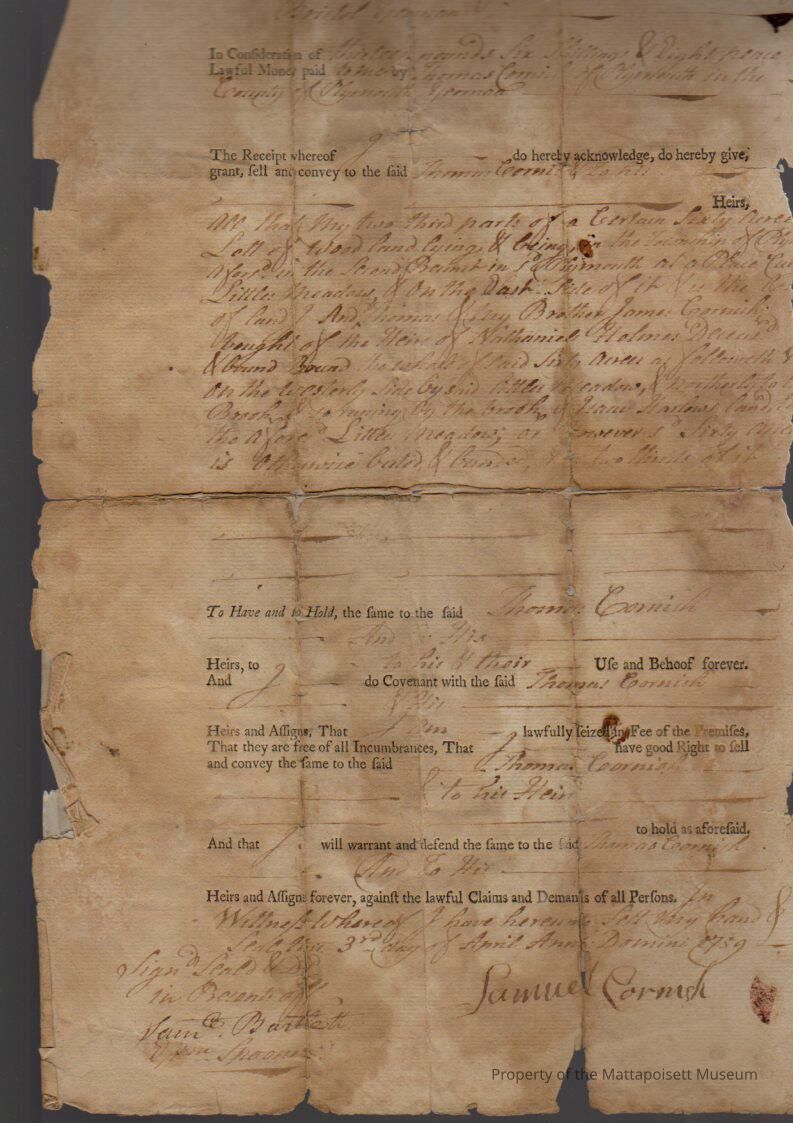 Bristol Yeoman
In Consideration of thirteen pounds Six Shillings & Eight pence
Lawful Money paid to me by Thomas Cornish of Plymouth in the
County of Plymouth Yeoman
The Receipt whereof I do hereby acknowledge, do hereby give,
grant, ſell and convey to the ſaid Thomas Cornish & to his
Heirs,
All that my two third parts of a Certain Sixty Acre
Lott of Wood land lying & being in the township of
in the Second in Plymouth at a Place
Little Meadow, & On the East Side of it is the
of land I And Thomas & my Brother James Cornish
bought of the Heirs of Nathaniel Holmes
& bound the whole of said Sixty Acres as followeth
On the Westerly Side by said Little Meadow, &
Brook & by the brook Isaac Harlows land,
the afore Little Meadow, or however sd Sixty
is Otherwise & two thirds of it
To Have and to Hold, the ſame to the ſaid Thomas Cornish
And His
Heirs, to his & their Uſe and Behoof forever.
And I do Covenant with the ſaid Thomas Cornish
& His
Heirs and Aſſigns, That I am lawfully ſeized in Fee of the Premiſes,
That they are free of all Incumbrances, That I have good Right to ſell
and convey the ſame to the ſaid Thomas Cornish
to his Heirs
to hold as aforeſaid.
And that I will warrant and defend the ſame to the ſaid Thomas Cornish
And To His
Heirs and Aſſigns forever, againſt the lawful Claims and Demands of all Perſons. In
Witness Whereof I have hereunto Sett my hand &
Seal this 3rd day of April Anno Domini 1759
Sign'd Seal'd &
in Presents of
Samuel Cornish
Samll Bartlett
Spooner
Property of the Mattapoisett Museum